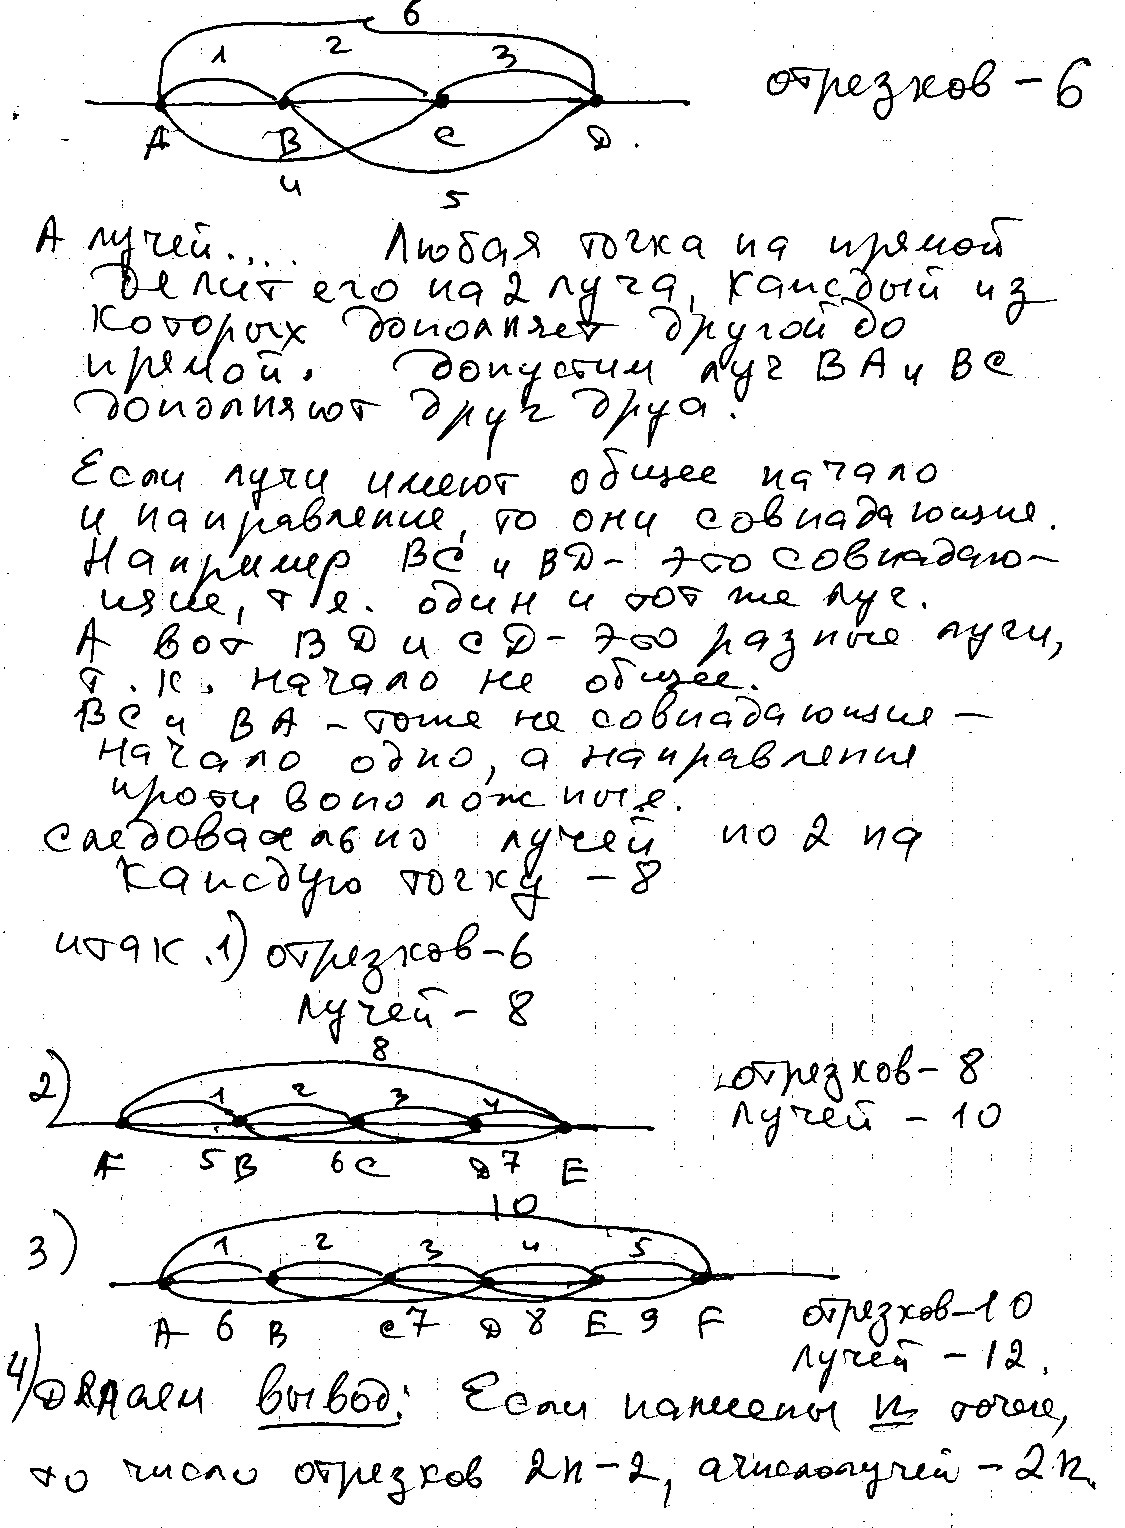 6
1 2 3
отрезков - 6
A B C D.
4 5
А лучей.... Любая точка на прямой
делит его на 2 луча, каждый из
которых дополняет другой до
прямой. Допустим луч BA и BC
дополняют друг друа.
Если лучи имеют общее начало
и направление, то они совпадающие.
Например BC и BD - это совпадаю-
щие, т.е. один и тот же луч.
А вот BD и CD - это разные лучи,
т.к. начало не общее.
BC и BA - тоже не совпадающие -
начало одно, а направления
противоположные.
следовательно лучей по 2 на
каждую точку - 8
итак. 1) отрезков - 6
лучей - 8
2) 8
1 2 3 4
отрезков - 8
лучей - 10
A 5 B 6 C D 7 E
3) 10
1 2 3 4 5
A 6 B C 7 D 8 E 9 F
отрезков - 10
лучей - 12.
4) Делаем вывод: Если названы n точек,
то число отрезков 2n-2, а число лучей - 2n.